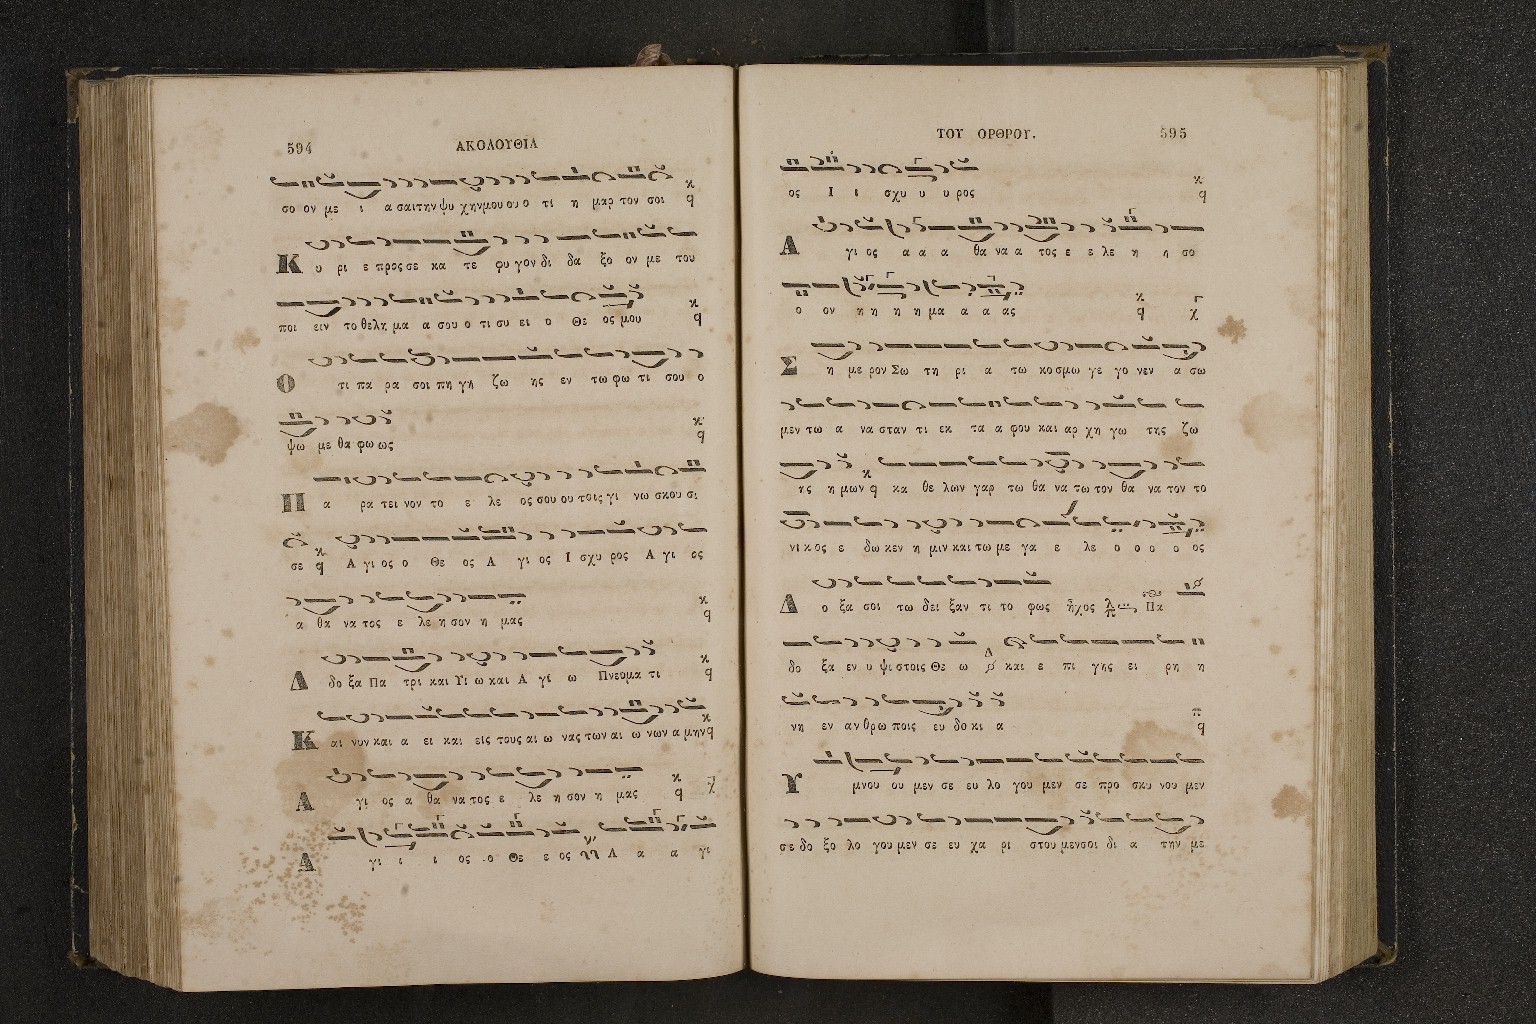 594 ΑΚΟΛΟΥΘΙΑ
σο ον με ι α σαι την ψυ χην μου ου ο τι η μαρ τον σοι
Κ υ ρι ε προς σε κα τε φυ γον δι δα ξο ον με του
ποι ειν το θελη μα α σου ο τι συ ει ο Θε ος μου
Ο τι πα ρα σοι πη γη ζω ης εν τω φω τι σου ο
ψω με θα φω ως
Π α ρα τει νον το ε λε ος σου ου τοις γι νω σκου σι
σε Α γι ος ο Θε ος Α γι ος Ι σχυ ρος Α γι ος
α θα να τος ε λε η σον η μας
Δ δο ξα Πα τρι και Υι ω και Α γι ω Πνευμα τι
Κ αι νυν και α ει και εις τους αι ω νας των αι ω νων α μην
Α γι ος α θα να τος ε λε η σον η μας
Α γι ι ι ος ο Θε ε ος Α α α γι
ΤΟΥ ΟΡΘΡΟΥ. 595
ος Ι ι σχυ υ υ ρος
Α γι ος α α α θα να α τος ε ε λε η η σο
ο ον η η η η μα α α ας
Σ η με ρον Σω τη ρι α τω κο σμω γε γο νεν α σω
μεν τω α να σταν τι εκ τα α φου και αρ χη γω της ζω
ης η μων κα θε λων γαρ τω θα να τω τον θα να τον το
νι κος ε δω κεν η μιν και τω με γα ε λε ο ο ο ο ος
Δ ο ξα σοι τω δει ξαν τι το φως ἦχος Πα
δο ξα εν υ ψι στοις Θε ω και ε πι γης ει ρη η
νη εν αν θρω ποις ευ δο κι α
Υ μνου ου μεν σε ευ λο γου μεν σε προ σκυ νου μεν
σε δο ξο λο γου μεν σε ευ χα ρι στου μεν σοι δι α την με